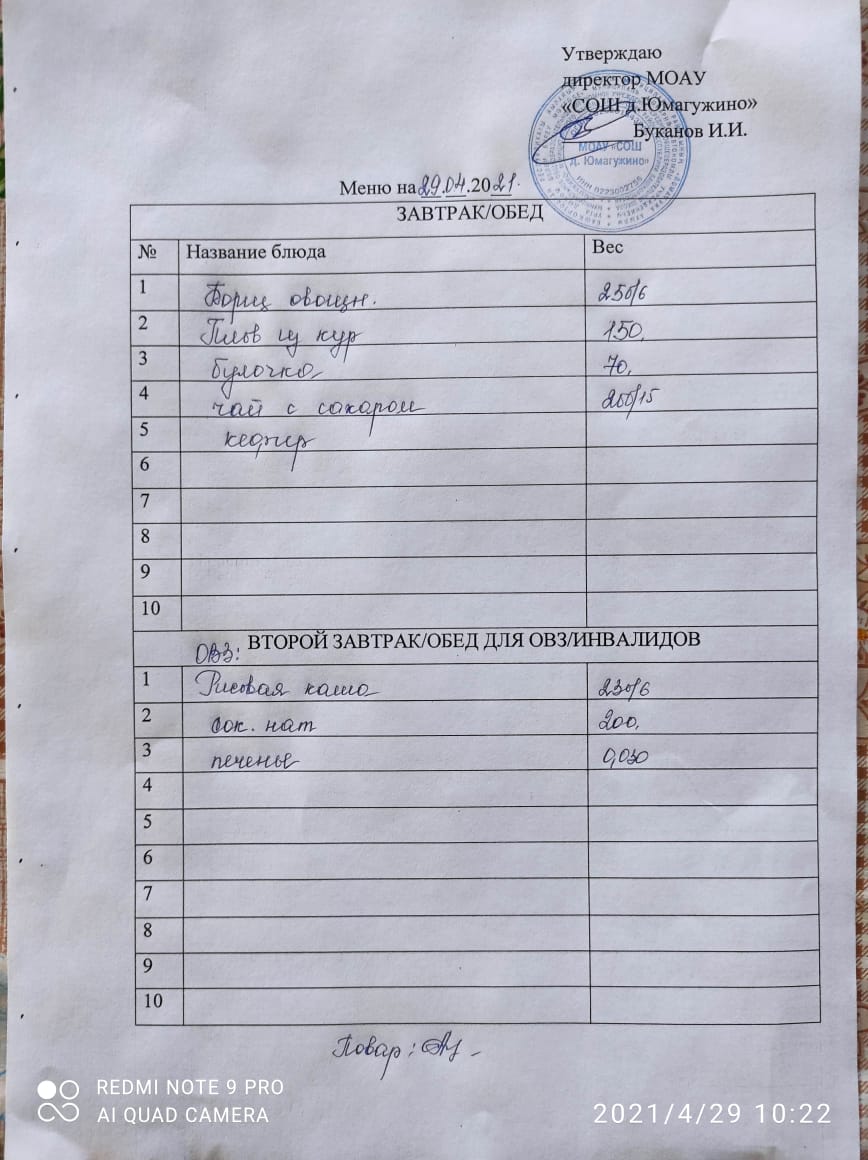 Утверждаю
директор МОАУ
«СОШ д.Юмагужино»
Буканов И.И.
МОАУ «СОШ
д. Юмагужино»
ИНН 0223002755
Меню на 29.04.2021.
ЗАВТРАК/ОБЕД
№ Название блюда Вес
1 Борщ овощн. 250/6
2 Плов из кур 150,
3 булочка 70,
4 чай с сахаром 200/15
5 кефир
6
7
8
9
10
ОВЗ: ВТОРОЙ ЗАВТРАК/ОБЕД ДЛЯ ОВЗ/ИНВАЛИДОВ
1 Рисовая каша 230/6
2 сок. нат 200,
3 печенье 0,030
4
5
6
7
8
9
10
Повар:
REDMI NOTE 9 PRO
AI QUAD CAMERA
2021/4/29 10:22